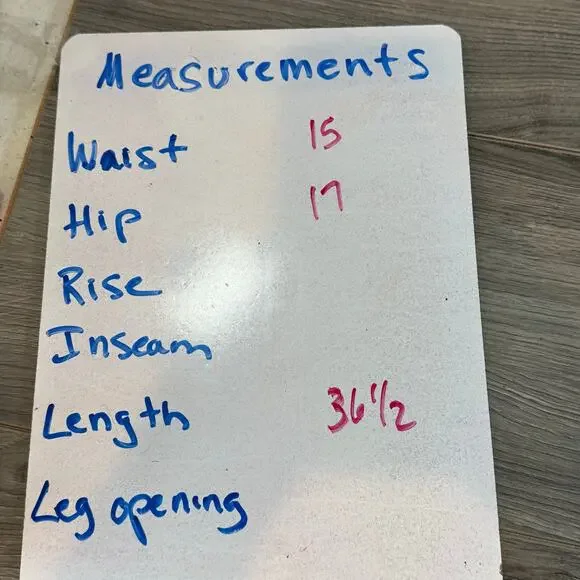 Measurements
Waist 15
Hip 17
Rise
Inseam
Length 36 1/2
Leg opening